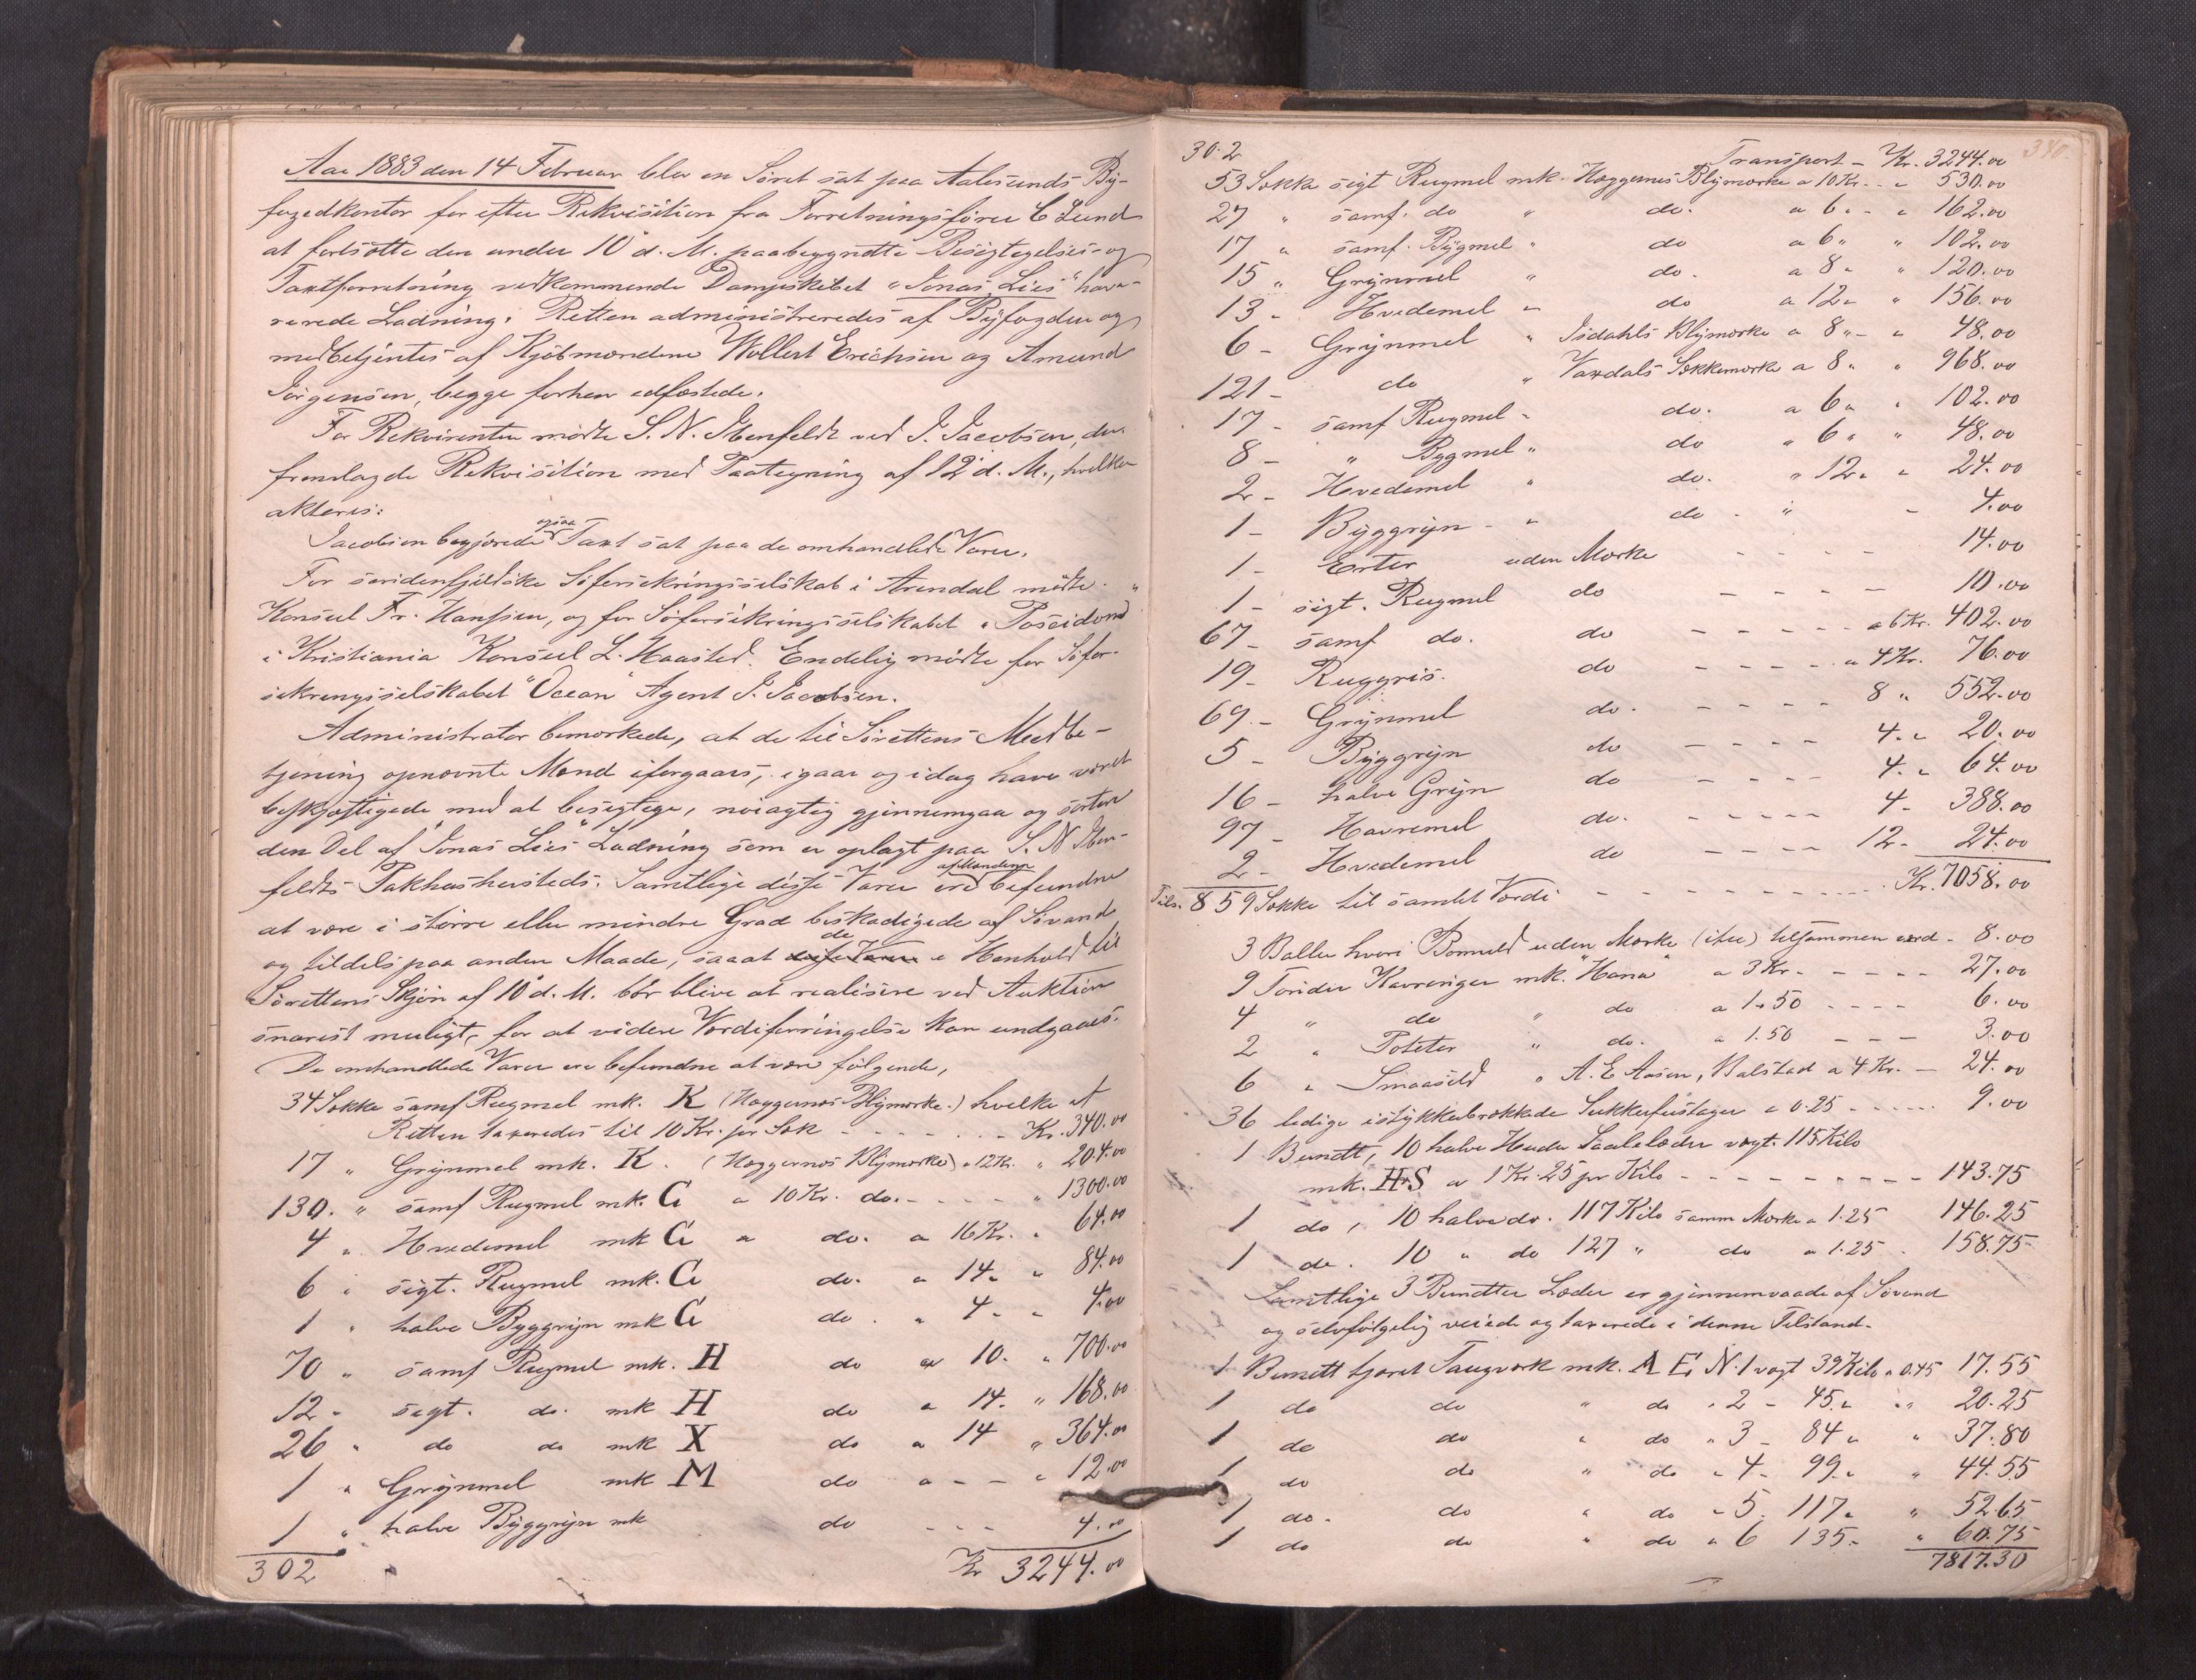 Aar 1883 den 14 Februar blev en Söret sat paa Aalesunds By-
fogedkontor for efter Rekvisition fra Forretningsförer C Lund
at fortsætte den under 10 d. M. paabegyndte Besigtigelses- og
Taxtforretning vedkommende Dampskibet "Jonas Lies" hava-
rerede Ladning. Retten administreredes af Byfogden og
medbetjentes af Kjöbmændene Wollert Erichsen og Amund
Jörgensen, begge forhen edfæstede.
For Rekvirenten mödte S. N. Ibenfeldt ved J. Jacobsen, der
fremlagde Rekvisition med Paategning af 12 d. M., hvilken
akteres:
Jacobsen begjærede ogsaa Taxt sat paa de omhandlede Varer.
For søndenfjeldske Söforsikringsselskab i Arendal mödte
Konsul Fr. Hanssen, og for Söforsikringsselskabet "Poseidon"
i Kristiania Konsul L. Kaasted. Endelig mödte for Söfor-
sikringsselskabet "Ocean" Agent J. Jacobsen.
Administrator bemærkede, at de til Sörettens Medbe-
tjening opnævnte Mænd iforgaars, igaar og idag have været
beskjæftigede med at besigtige, nöiagtig gjennemgaa og sortere
den Del af "Jonas Lies" Ladning som er oplagt paa S. N. Iben-
feldts Pakhus hersteds. Samtlige disse Varer ere af Mændene befundne
at være i större eller mindre Grad beskadigede af Sövand
og tildels paa anden Maade, saaat de disse Varer i Henhold til
Sörettens Skjön af 10 d. M. bör blive at realisere ved Auktion
snarest muligt, for at videre Værdiforringelse kan undgaaes.
De omhandlede Varer ere befundne at være fölgende,
34 Sække samf Rugmel mk. K (Vaggernæs Blymærke.) hvilke af
Retten taxeredes til 10 Kr. pr Sæk - - - - Kr. 340.00
17 " Grynmel mk. K. (Vaggernæs Blymærke) a 12 Kr. " 204.00
130. " samf Rugmel mk. G a 10 Kr. do. - - - - " 1300.00
4 " Hvedemel mk G a do. a 16 Kr. " 64.00
6 " sigt. Rugmel mk. G do. a 14 " " 84.00
1 " halve Byggryn mk G do. " 4 - " 4.00
70 " samf Rugmel mk. H do a 10. " 700.00
12 " sigt. do. mk H do a 14. " 168.00
26 " do do mk X do a 14 " 364.00
1 " Grynmel mk M do a - - " 12.00
1 " halve Byggryn mk do - - - 4.00
302 Kr 3244.00
340.
302 Transport - Kr. 3244.00
53 Sække sigt Rugmel mk. Vaggernæs Blymærke a 10 Kr. - " 530.00
27 " samf. do " do. a 6 " - " 162.00
17 " samf. Bygmel " do a 6 " " 102.00
15 " Grynmel " do. a 8 " " 120.00
13 - Hvedemel " do a 12 " " 156.00
6 - Grynmel " Isdahls Blymærke a 8 " - " 48.00
121 - do " Vaxdals Sækkemærke a 8 " " 968.00
17 - samf Rugmel " do. a 6 " " 102.00
8 - " Bygmel " do " 6 " " 48.00
2 - Hvedemel " do. " 12 " " 24.00
1 - Byggryn - " do - " - 4.00
1 - Erter uden Mærke - - - - - 14.00
1 - sigt. Rugmel do - - - - - 10.00
67 - samf do. do - - - - - a 6 Kr. 402.00
19 - Ruggris. do - - - - . a 4 Kr. 76.00
69 - Grynmel do. - - - - - 8 " 552.00
5 - Byggryn do - - - - 4 " 20.00
16 - halve Gryn do - - - - 4 " 64.00
97 - Havremel do. - - - - - 4 - 388.00
2 - Hvedemel do - - - - 12 - 24.00
Tils. 859 Sække til samlet Værdi - - - - - - - - Kr. 7058.00
3 Baller hvori Bomuld uden Mærke (itu) tilsammen værd - 8.00
9 Tönder Kavringer mk. "Hana" a 3 Kr - - - - - 27.00
4 " do " do a 1.50 - - - - 6.00
2 " Poteter " do. a 1.50 - - - 3.00
6 " Smaasild " A. E Aasen, Balstad a 4 Kr. - 24.00
36 ledige istykkerbrækkede Sukkerfustager a 0.25 - - - - - 9.00
1 Bundt, 10 halve Huder Saalelæder vægt. 115 Kilo
mk. H S a 1 Kr. 25 pr Kilo - - - - - - - - - 143.75
1 do, 10 halve do. 117 Kilo samm Mærke a 1.25 146.25
1 do. 10 " do 127 " do a 1.25 . 158.75
Samtlige 3 Bundter Læder er gjennemvaade af Sövand
og selvfölgelig veiede og taxerede i denne Tilstand.
1 Bundt tjæret Taugværk mk. A E N. 1 vægt 39 Kilo a 0.45 17.55
1 do do " do " 2 - 45 " " 20.25
1 do do " do " 3 - 84 " " 37.80
1 do do " do " 4 - 99 " " 44.55
1 do. do " do " 5. 117 " " 52.65
1 do do " do " 6 135 " " 60.75
7817.30